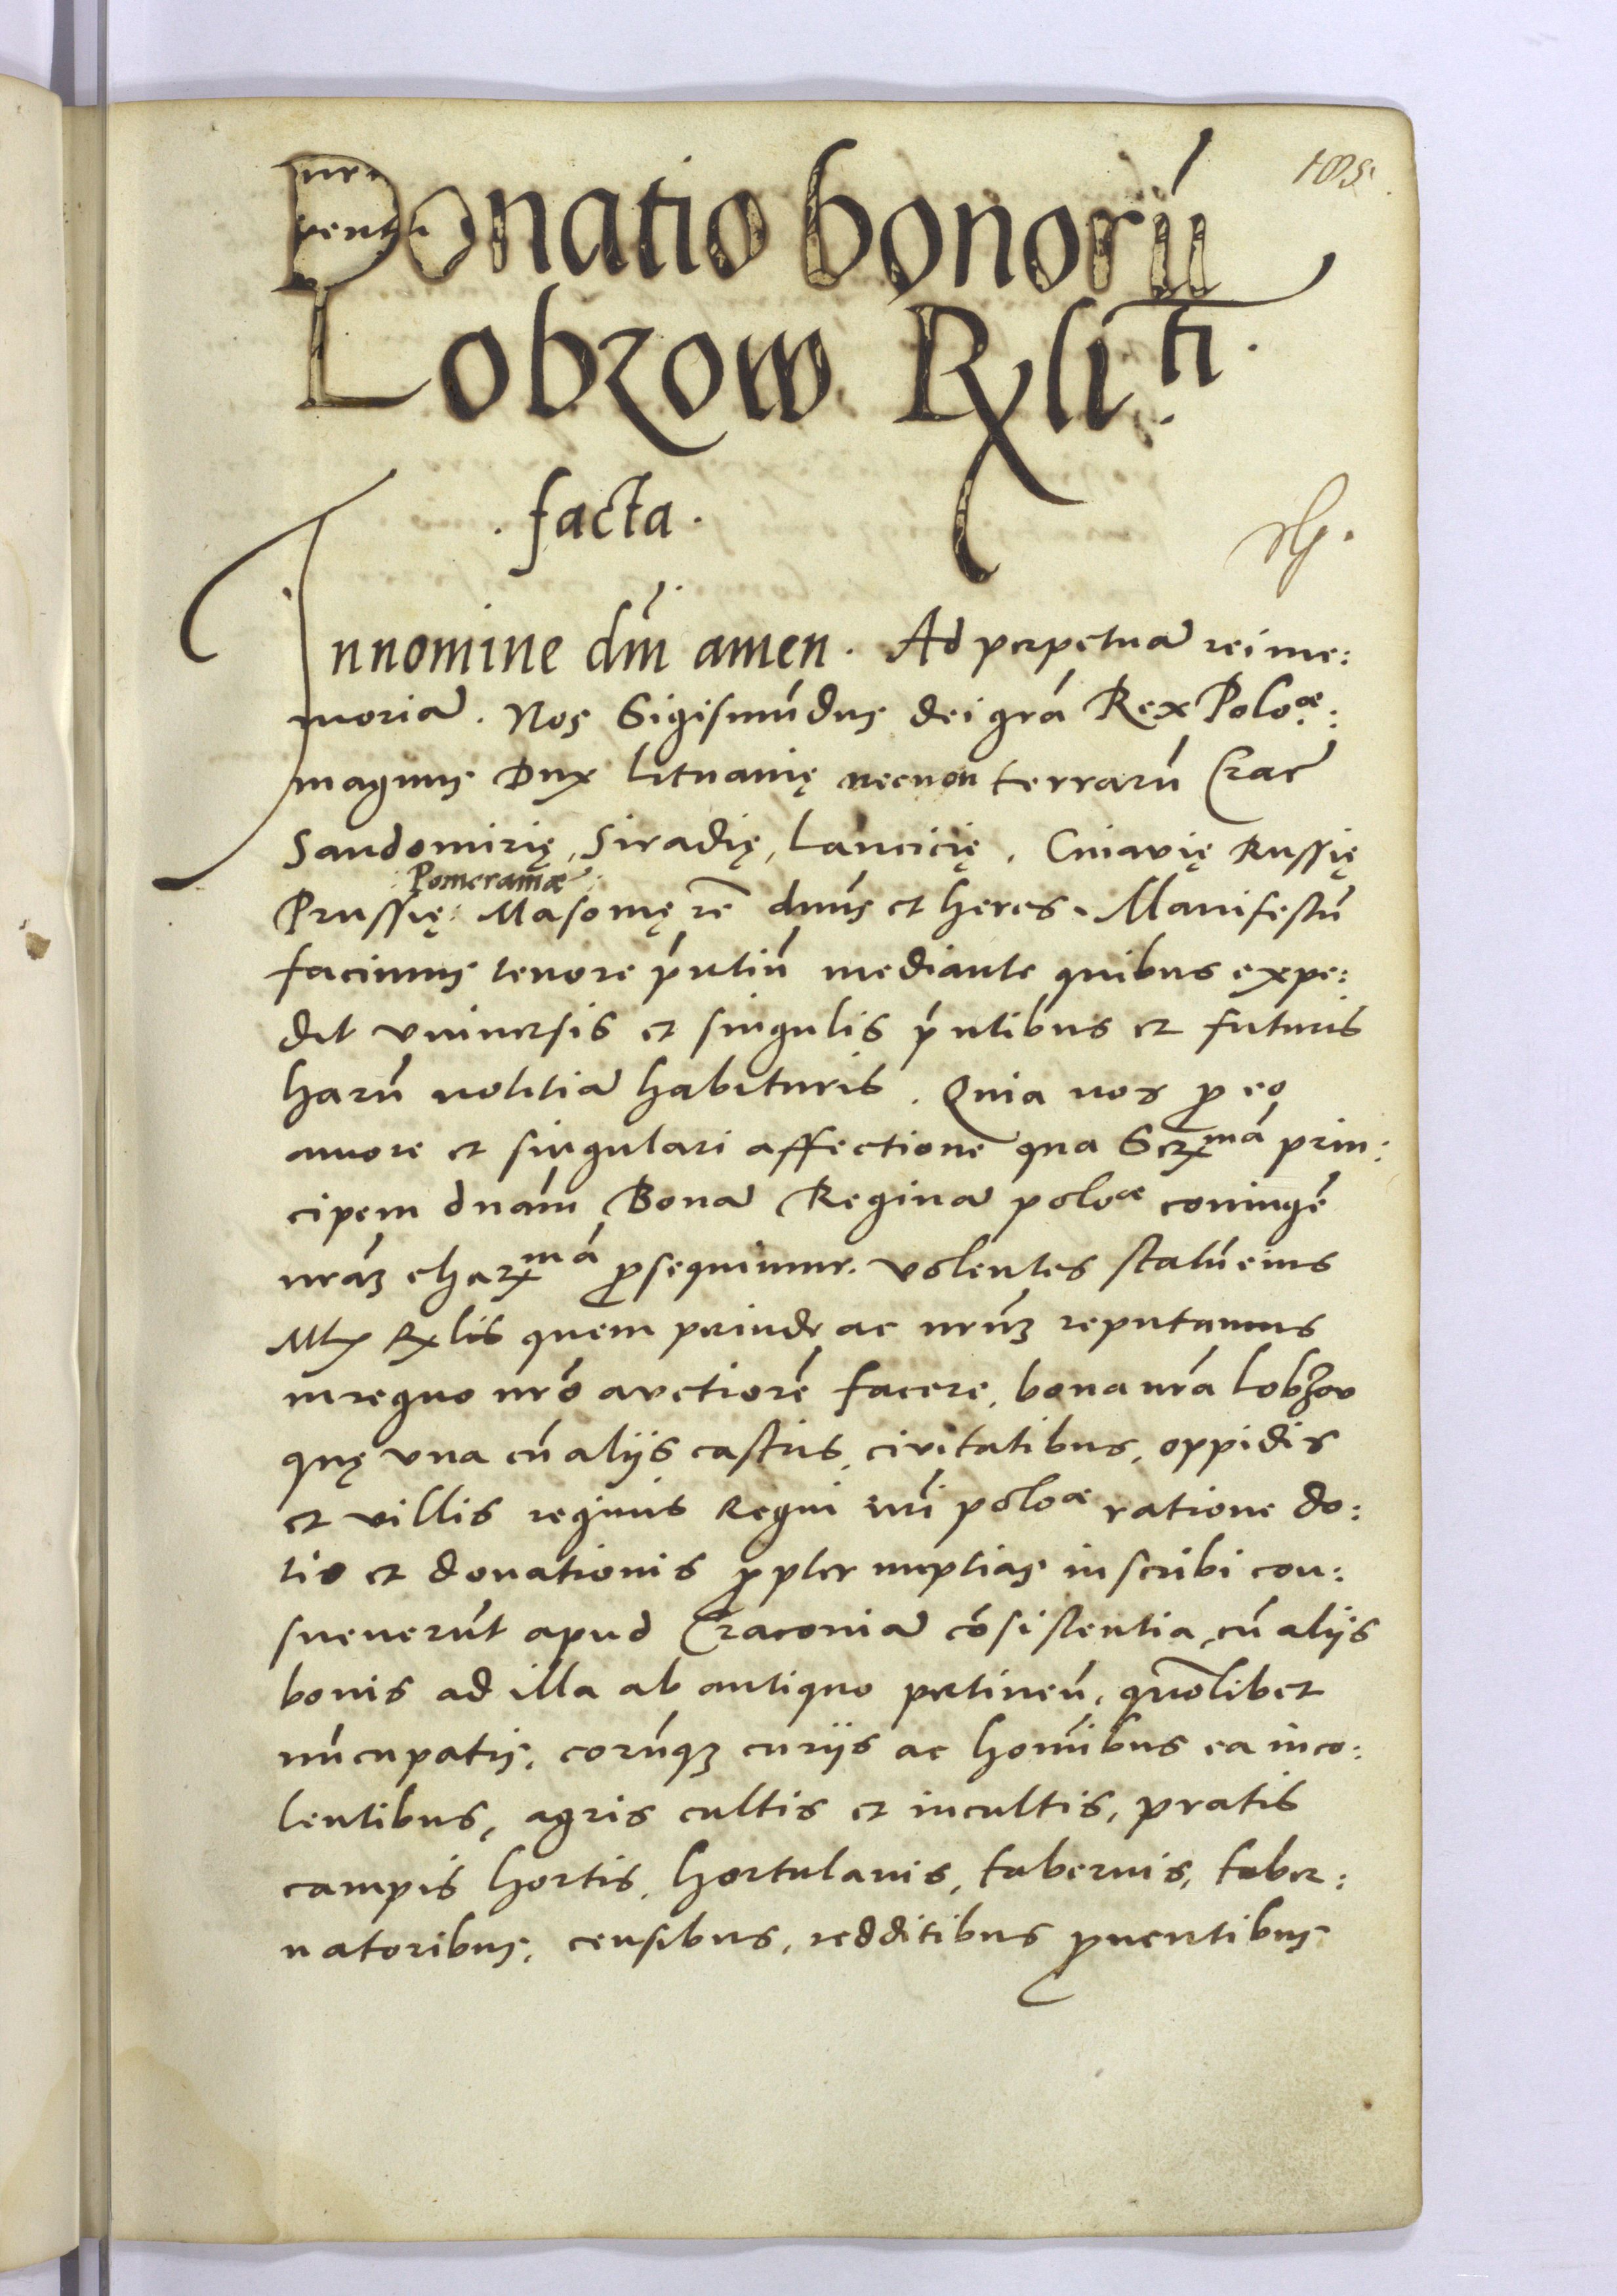 Donatio bonorū
Lobzow Rxli ti.
. facta .
Innomine dni amen . Ad perpetuā rei me:
moriā . Nos Sigismundus dei gra Rex Poloæ:
magnus Dux Lituanię necnon terrarū Crac
Sandomirię, Siradię, Lancicię, Cuiavię Russię
: Pomeraniæ :
Prussię : Masouię rē dnus et heres. Manifestū
facimus tenore pntiū mediante quibus expe:
dit vniuersis et singulis pntibus et futuris
harū notitiā habituris . Quia nos p eo
amore et singulari affectione qua Serx ma prin:
cipem dnam Bonā Reginā poloæ coniugē
nrāȝ charx ma psequimur. volentes statū eius
Mtx Rxlis quem perinde ac nrūȝ reputamus
in regno nrō auctiorē facere, bona nra Lobzow
quę vna cū aliis castris, civitatibus, oppidis
et villis regiuis Regni nri poloæ ratione do:
tis et donationis ppter nuptias inscribi con:
sueuerūt apud Cracouiā cōsistentia, cū aliis
bonis ad illa ab antiquo ptineū, quōlibet
nūcupatis, eorūqȝ curiis ac hominibus ea inco:
lentibus, agris cultis et incultis, pratis
campis hortis, hortulanis, tabernis, taber:
natoribus, censibus, redditibus puentibus